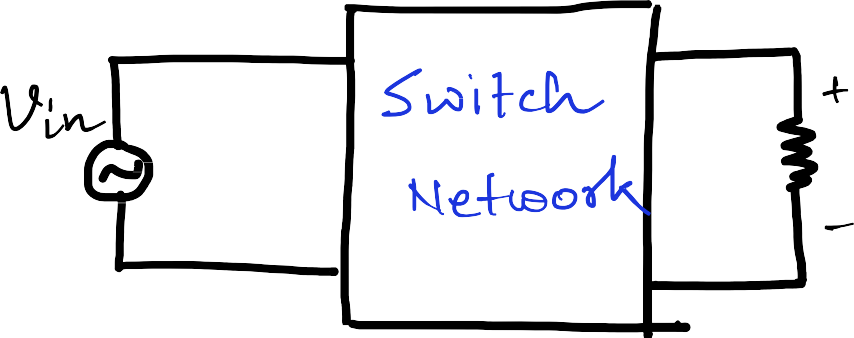 Vin
Switch
Network
+
-